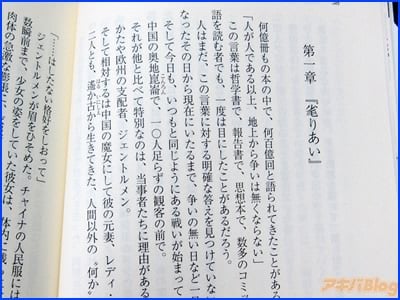 第一章 『雀りあい』
何億冊もの本の中で、何百億回と語られてきたことがある
「人が人である以上、地上から争いは無くならない」
この言葉は哲学書で、報告書で、思想本で、数多のコミッ
語を読む者でも、一度は目にしたことがあるだろう。
人はまだ、この言葉に対する明確な答えを見つけていな
なったその日から現在にいたるまで、争いの無い日など一
そして今日も、いつもと同じようにある戦いが始まって
中国の奥地崑崙で、一〇人足らずの観客の前で。
こんろん
それが他と比べて特別なのは、当事者たちに理由がある
かたや欧州の支配者、ジェントルメン。
そして相対するは中国の魔女にして彼の元妻、レディ・
二人とも、遥か古から生きてきた、人間以外の〝何か〟
「……はしたない格好をしおって」
ジェントルメンが眉をひそめた。チャイナの人民服には
数瞬前まで、少女の姿をしていた彼女は、体内
肉体の急激な膨張
アキバBlog